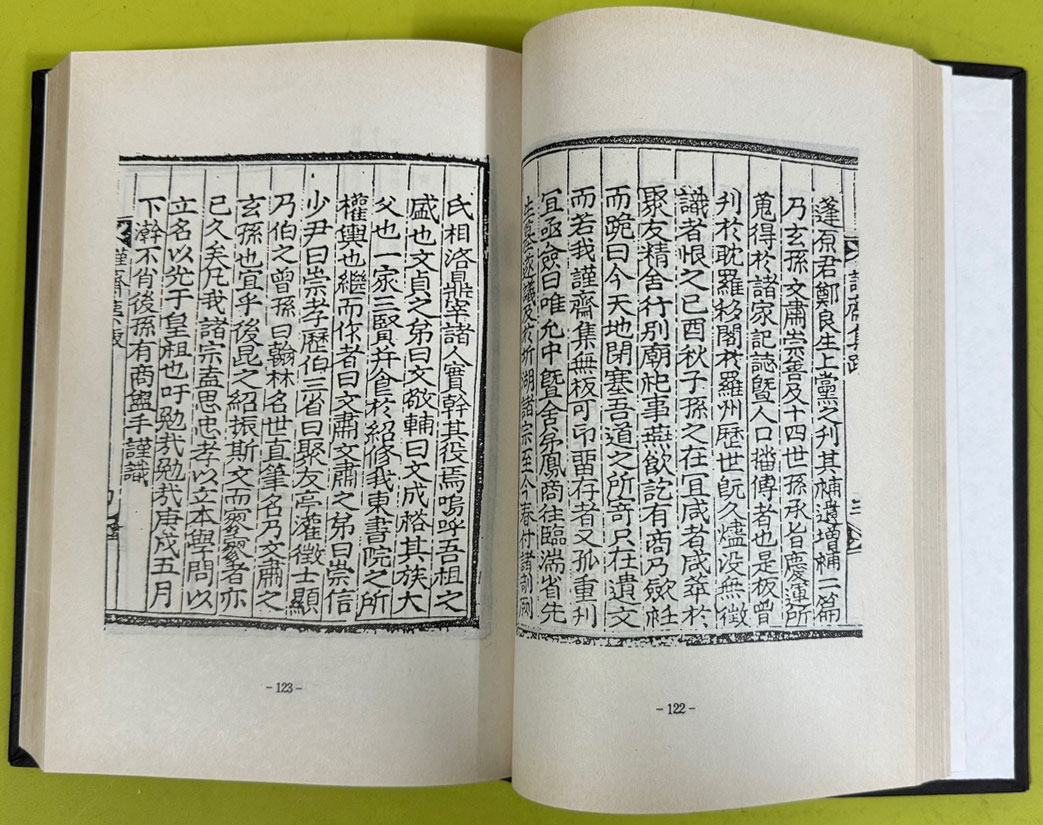 蓬原君鄭良生上黨之刋其補遺增補二篇
乃玄孫文肅崇善及十四世孫承旨慶運所
蒐得於諸家記誌曁人口播傳者也是板曾
刋於耽羅移閣於羅州歷世旣久燼没無徵
識者恨之己酉秋子孫之在宜咸者咸萃於
聚友精舍行別廟祀事蕪飮訖有商乃斂衽
而跪曰今天地閉塞吾道之所寄只在遺文
而若我謹齋集無板可印畱存者又孤重刋
宜亟僉曰唯允中曁舍弟鳳商往臨湍省先
墓遂議及於圻湖諸宗至今春付諸剞劂
謹齋集跋
三
- 122 -
氏相洛鼎宰諸人實幹其役焉嗚呼吾祖之
盛也文貞之弟曰文敬輔曰文成格其族大
父也一家三賢并食於紹修我東書院之所
權輿也繼而作者曰文肅文肅之弟曰崇信
少尹曰崇孝歷伯三省曰聚友亭灌徵士顯
乃伯之曾孫曰翰林名世直筆名乃文肅之
玄孫也宜乎後昆之紹振斯文而寥寥者亦
已久矣凡我諸宗盍思忠孝以立本學問以
立名以光于皇祖也吁勉㢤勉㢤庚戌五月
下澣不肖後孫有商盥手謹識
- 123 -